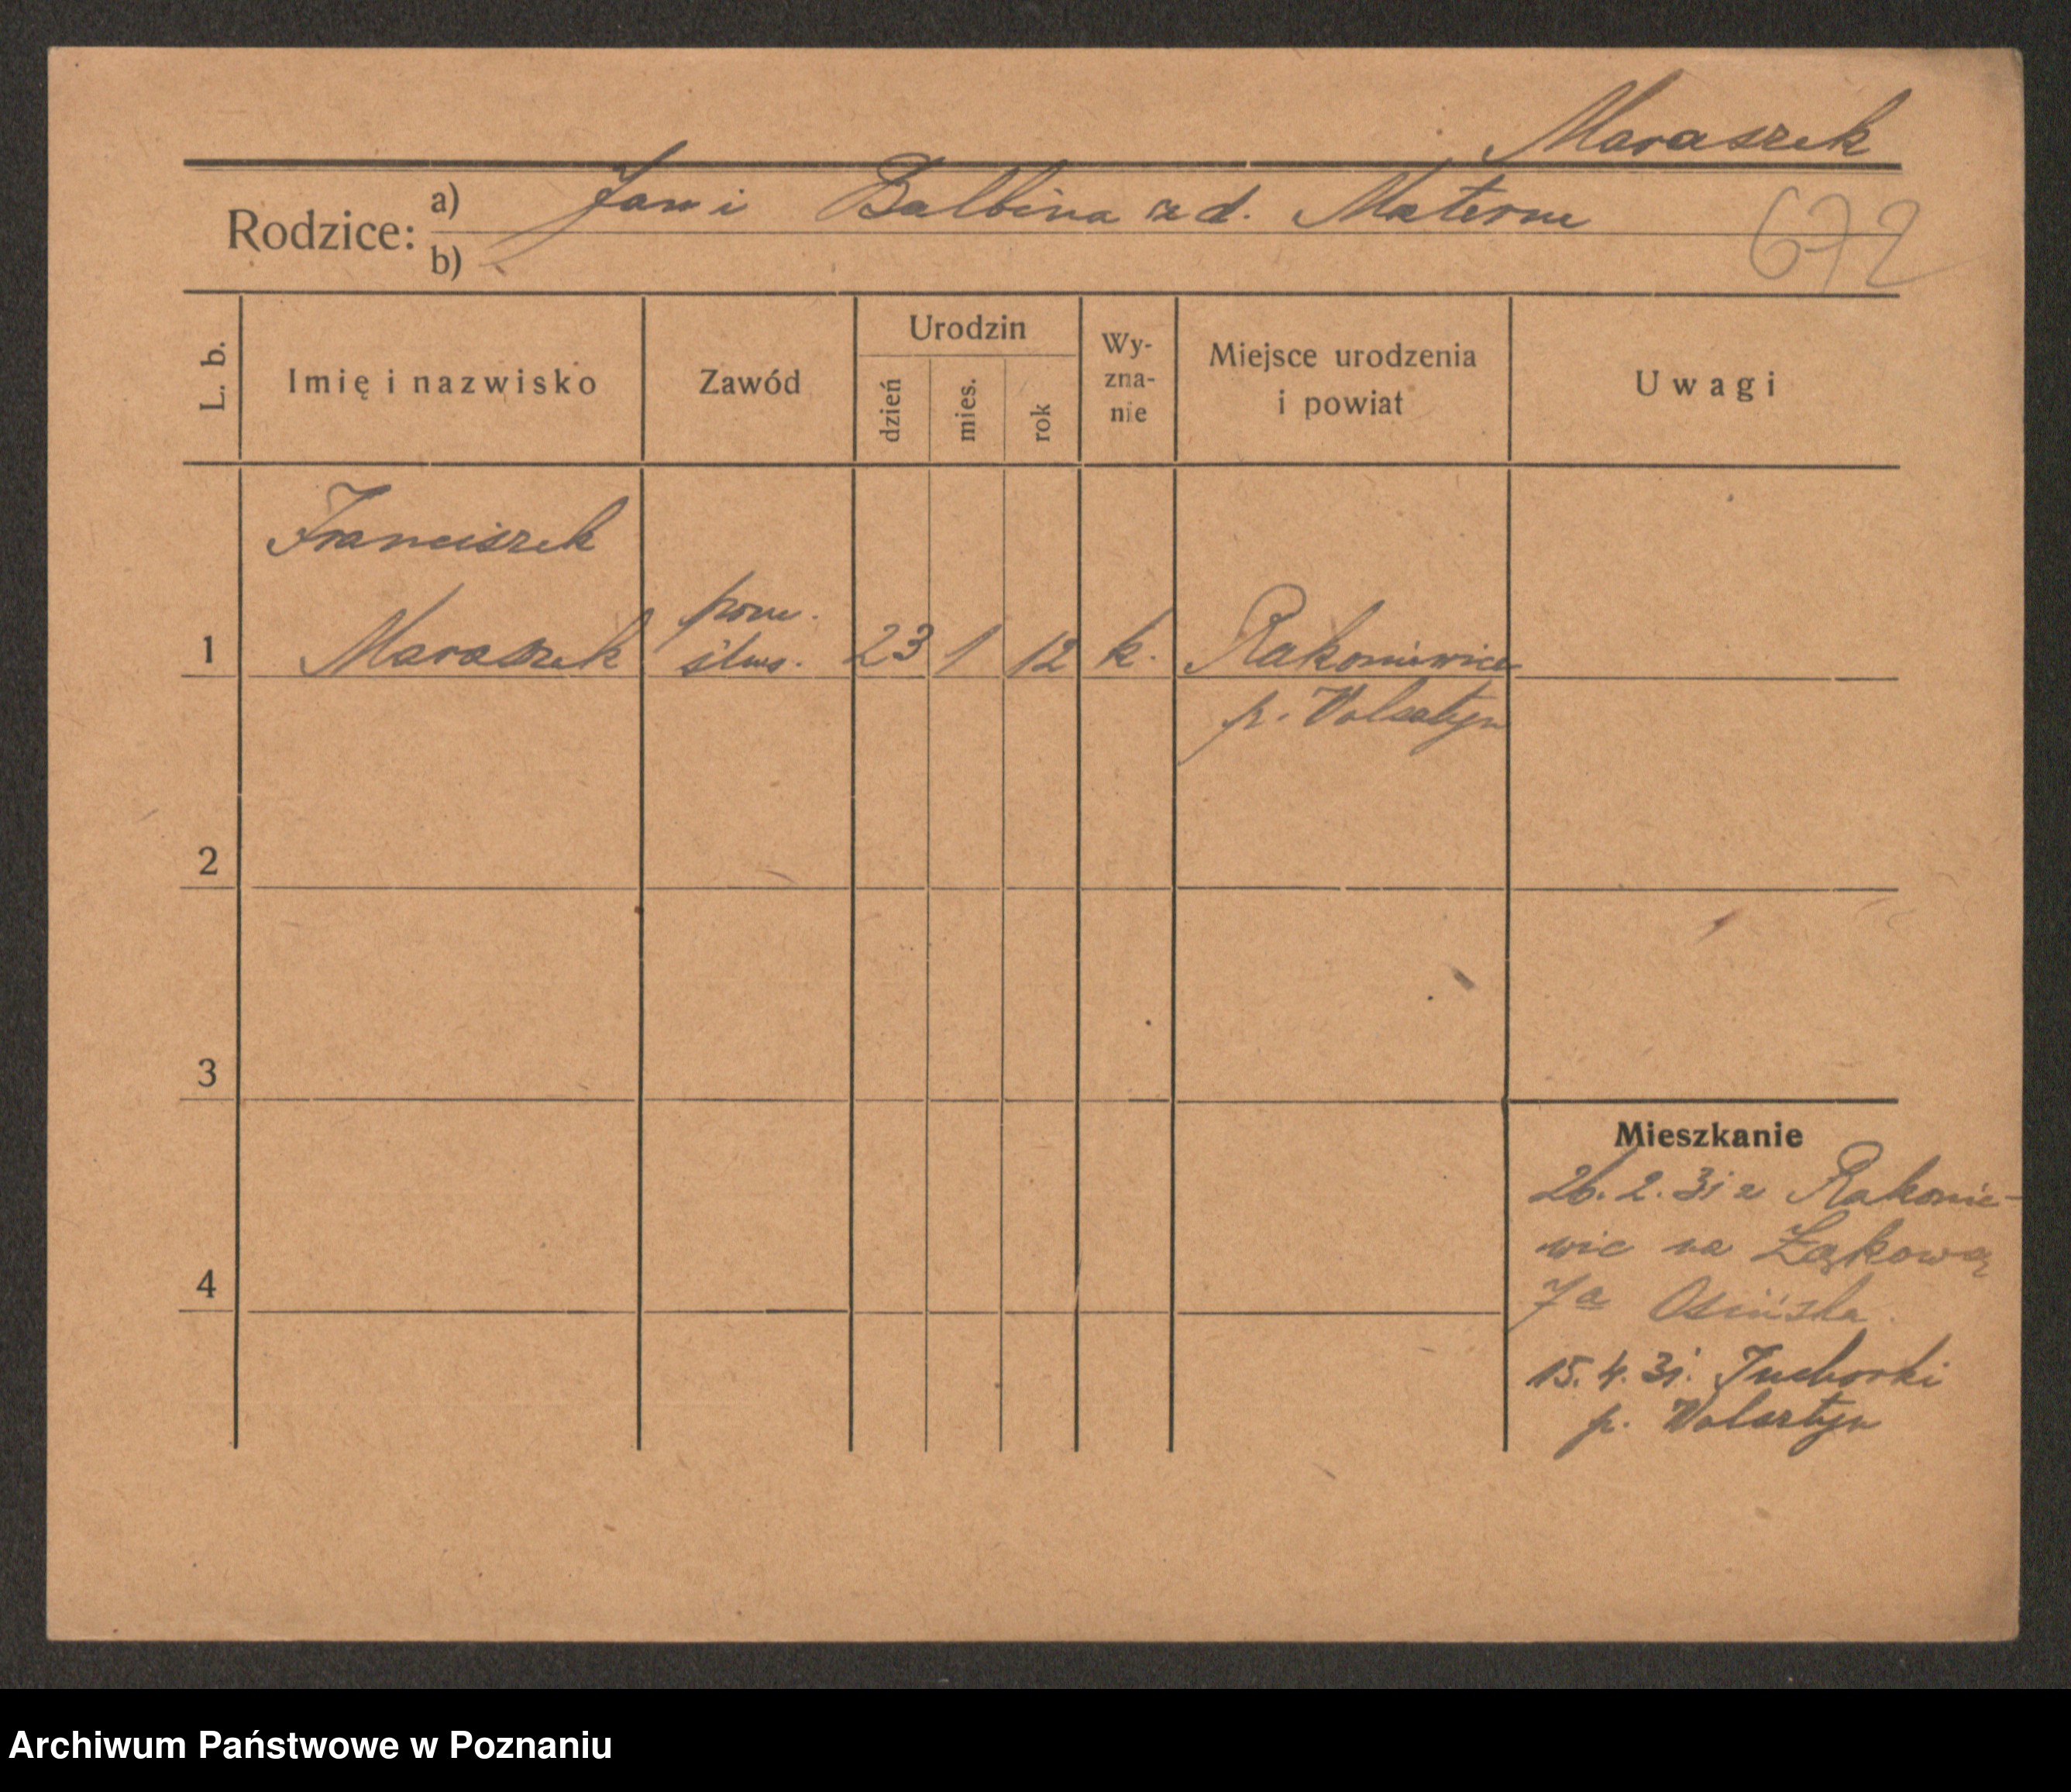 Maraszek
Rodzice: a) Jan i Balbina zd. Materna
b)
672
L. b.
Imię i nazwisko
Zawód
Urodzin
dzień
mies.
rok
Wy-
zna-
nie
Miejsce urodzenia
i powiat
Uwagi
Franciszek
1 Maraszek pom. ślus. 23 1 12 k. Rakoniewice
p. Wolsztyn
2
3
4
Mieszkanie
26. 2. 31 z Rakonie-
wic na Łąkową
7a Osińska.
15. 4. 31. Tuchorki
p. Wolsztyn
Archiwum Państwowe w Poznaniu